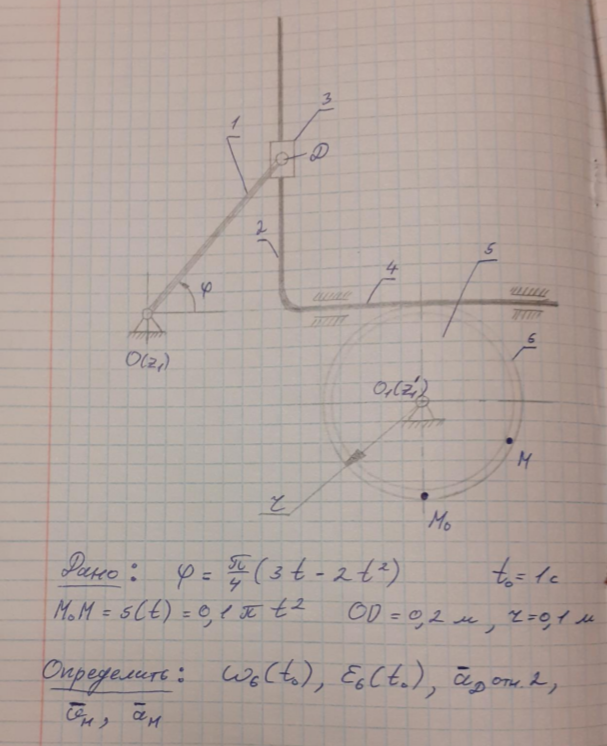 1
3
D
2
φ
4
5
6
O(z₁)
O₁(z₁')
M
r
M₀
Дано: φ = π/4 (3t - 2t²) t₀ = 1с
M₀M = s(t) = 0,1πt² OD = 0,2 м, r = 0,1 м
Определить: ω₆(t₀), ε₆(t₀), ā_D отн. 2,
v̄_M, ā_M